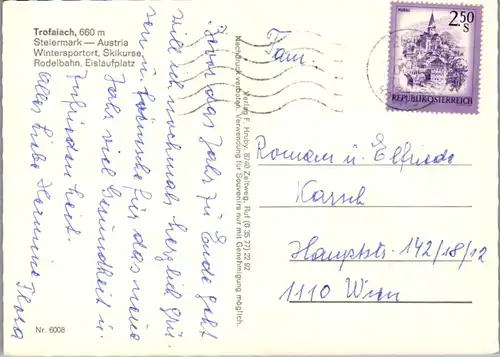 Trofaiach, 660 m
Steiermark — Austria
Wintersportort, Skikurse,
Rodelbahn, Eislaufplatz
Bevor das Jahr zu Ende geht
will ich nochmals herzlich Grü-
sen u. Wünsche für das neue
Jahr viel Gesundheit u.
Zufriedenheit
Alles Liebe Hermine
Nr. 6008
Verlag F. Hruby, 8740 Zeltweg, Ruf (0 35 77) 22 92
Nachdruck verboten. Verwendung für Souvenirs nur mit Genehmigung möglich.
MURAU
2.50
S
REPUBLIK ÖSTERREICH
Fam.
Roman u. Elfriede
Hauptstr. 142/18/12
1110 Wien